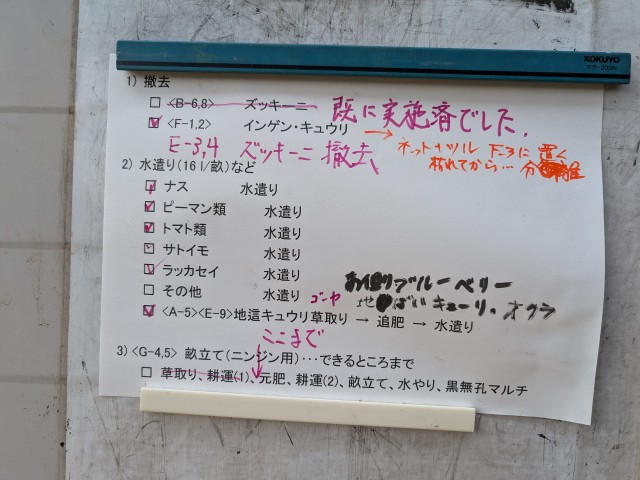 KOKUYO
1) 撤去
□ <B-6,8> ズッキーニ 既に実施済でした.
☑ <F-1,2> インゲン・キュウリ → ネットとツル F-3に置く
枯れてから… 分離
E-3,4 ズッキーニ 撤去
2) 水遣り(16 l/畝)など
☑ ナス 水遣り
☑ ピーマン類 水遣り
☑ トマト類 水遣り
□ サトイモ 水遣り
☑ ラッカセイ 水遣り
□ その他 水遣り
ブルーベリー
キューリ、オクラ
ゴーヤ
☑ <A-5><E-9>地這キュウリ草取り → 追肥 → 水遣り
ここまで
3) <G-4,5> 畝立て(ニンジン用)…できるところまで
□ 草取り、耕運(1)、元肥、耕運(2)、畝立て、水やり、黒無孔マルチ